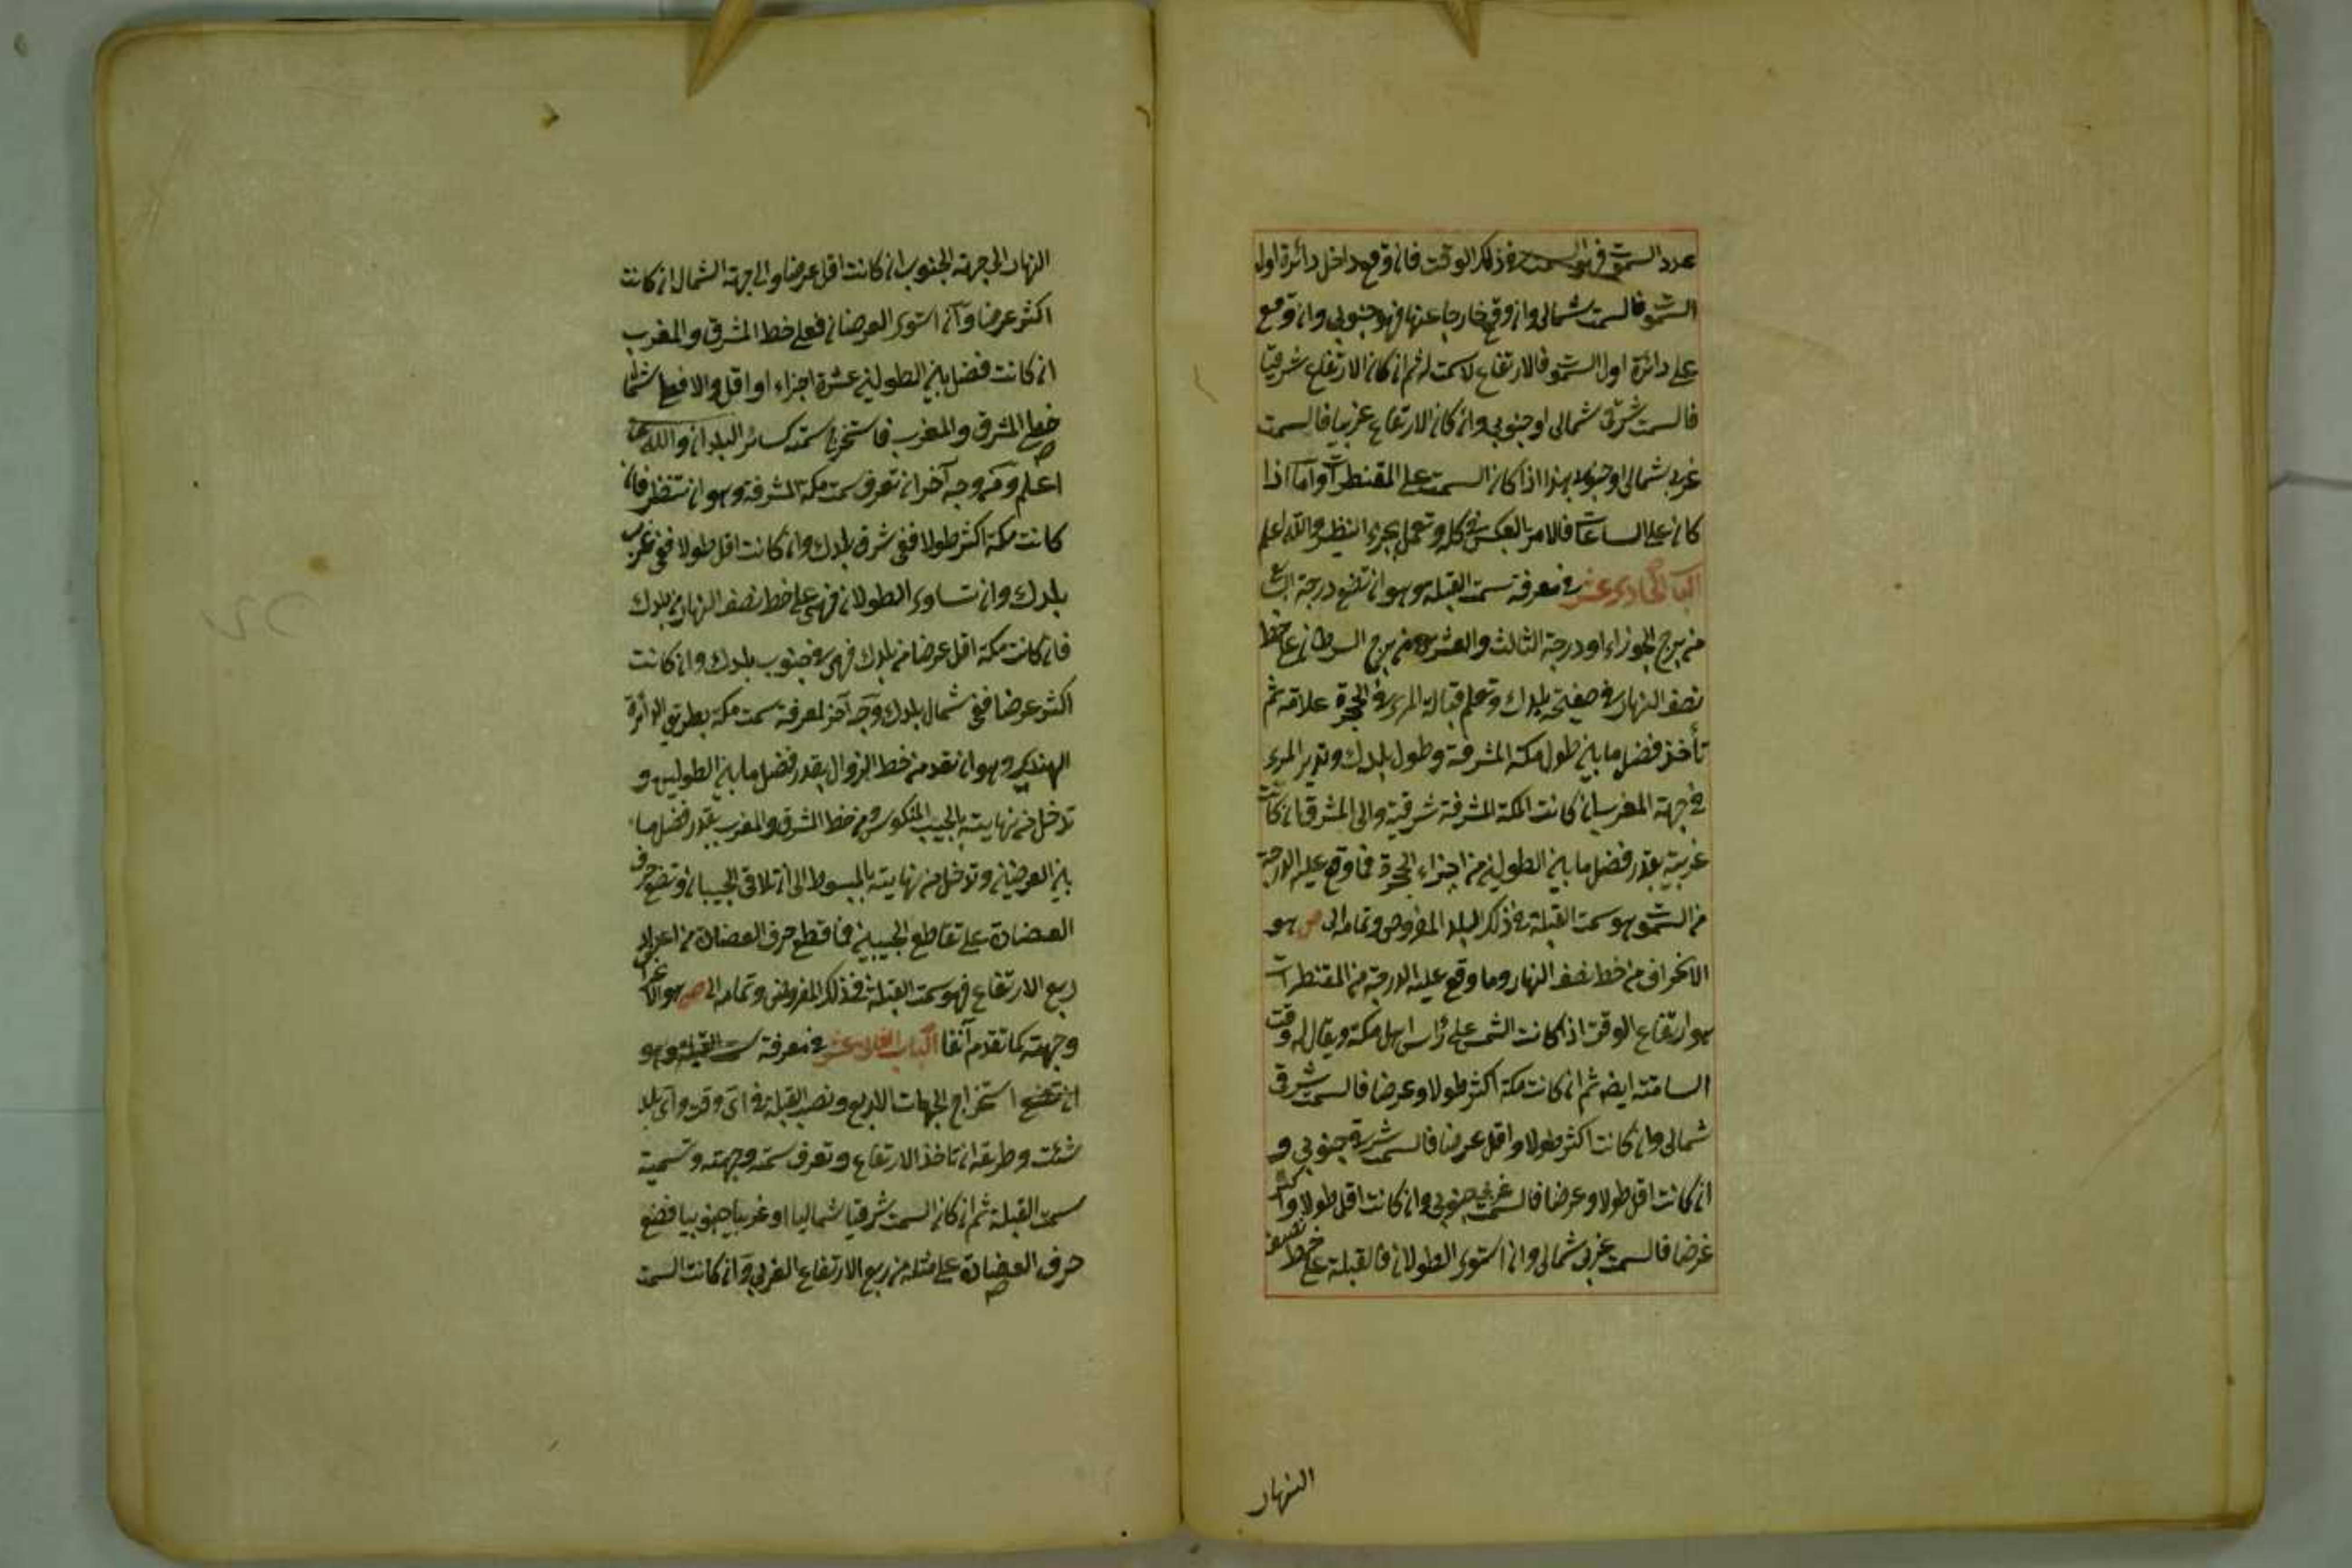 عدد السموت فهو السمت في ذلك الوقت فان وقع داخل دائرة اول
السموت فالسمت شمالى وان وقع خارجا عنها فهو جنوبى وان وقع
على دائرة اول السموت فالارتفاع لا سمت له ثم ان كان الارتفاع شرقيا
فالسمت شرقى شمالى او جنوبى وان كان الارتفاع غربيا فالسمت
غربى شمالى او جنوبى هذا اذا كان السمت على المقنطرات واما اذا
كان على الساعات فالامر بالعكس فى كله وتعمل بجزء النظير والله اعلم
الباب الحادى عشر فى معرفة سمت القبلة وهو ان تضع درجة
من برج الجوزاء او درجة الثالث والعشرين من برج السرطان على خط
نصف النهار فى صفيحة بلدك وتعلم قبالة المرى فى الحجرة علامة ثم
تأخذ فضل ما بين طول مكة المشرفة وطول بلدك وتدير المرى
فى جهة المغرب ان كانت المكة المشرفة شرقية والى المشرق ان كانت
غربية بقدر فضل ما بين الطولين من اجزاء الحجرة فما وقع عليه الدرجة
من السموت هو سمت القبلة فى ذلك البلد المفروض وتمامه الى ص هو
الانحراف من خط نصف النهار وما وقع عليه الدرجة من المقنطرات
هو ارتفاع الوقت اذا كانت الشمس على رأس اهل مكة ويقال له وقت
السامتة ايضه ثم ان كانت مكة اكثر طولا وعرضا فالسمت شرقى
شمالى وان كانت اكثر طولا واقل عرضا فالسمت شرقى جنوبى و
ان كانت اقل طولا وعرضا فالسمت غربى جنوبى وان كانت اقل طولا واكثر
عرضا فالسمت غربى شمالى وان استوى الطولان فالقبلة على خط نصف
النهار
النهار الى جهة الجنوب ان كانت اقل عرضا والى جهة الشمال ان كانت
اكثر عرضا وان استوى العرضان فعلى خط المشرق والمغرب
ان كانت فضل بين الطولين عشرة اجزاء او اقل والا فعلى شمال
خط المشرق والمغرب فاستخرج سمته كسائر البلدان والله
اعلم ومن وجه آخر ان تعرف سمت مكة المشرفة وهو ان تنظر فان
كانت مكة اكثر طولا ففى شرق بلدك وان كانت اقل طولا ففى غرب
بلدك وان تساوى الطولان فهى على خط نصف النهار من بلدك
فان كانت مكة اقل عرضا من بلدك فهى فى جنوب بلدك وان كانت
اكثر عرضا ففى شمال بلدك وجه آخر لمعرفة سمت مكة بطريق الدائرة
الهندية وهو ان تقدم من خط الزوال بقدر فضل ما بين الطولين و
تدخل من نهايته بالجيب المنكوس ومن خط المشرق والمغرب بقدر فضل ما
بين العرضين وتدخل من نهايته بالمبسوط الى ان تلاقى الجيبان وتضع حرف
العضادة على تقاطع الجيبين فما قطع حرف العضادة من اجزاء
ربع الارتفاع فهو سمت القبلة فى ذلك المفروض وتمامه الى ص هو الانحراف
وجهته كما تقدم آنفا الباب الثانى عشر فى معرفة سمت القبلة وهو
ان تضع استخراج الجهات الاربع ونصب القبلة فى اى وقت واى بلد
شئت وطريقه ان تاخذ الارتفاع وتعرف سمته وجهته وتسمية
سمت القبلة ثم ان كان السمت شرقيا شماليا او غربيا جنوبيا فضع
حرف العضادة على مثله من ربع الارتفاع الغربى وان كانت السمت